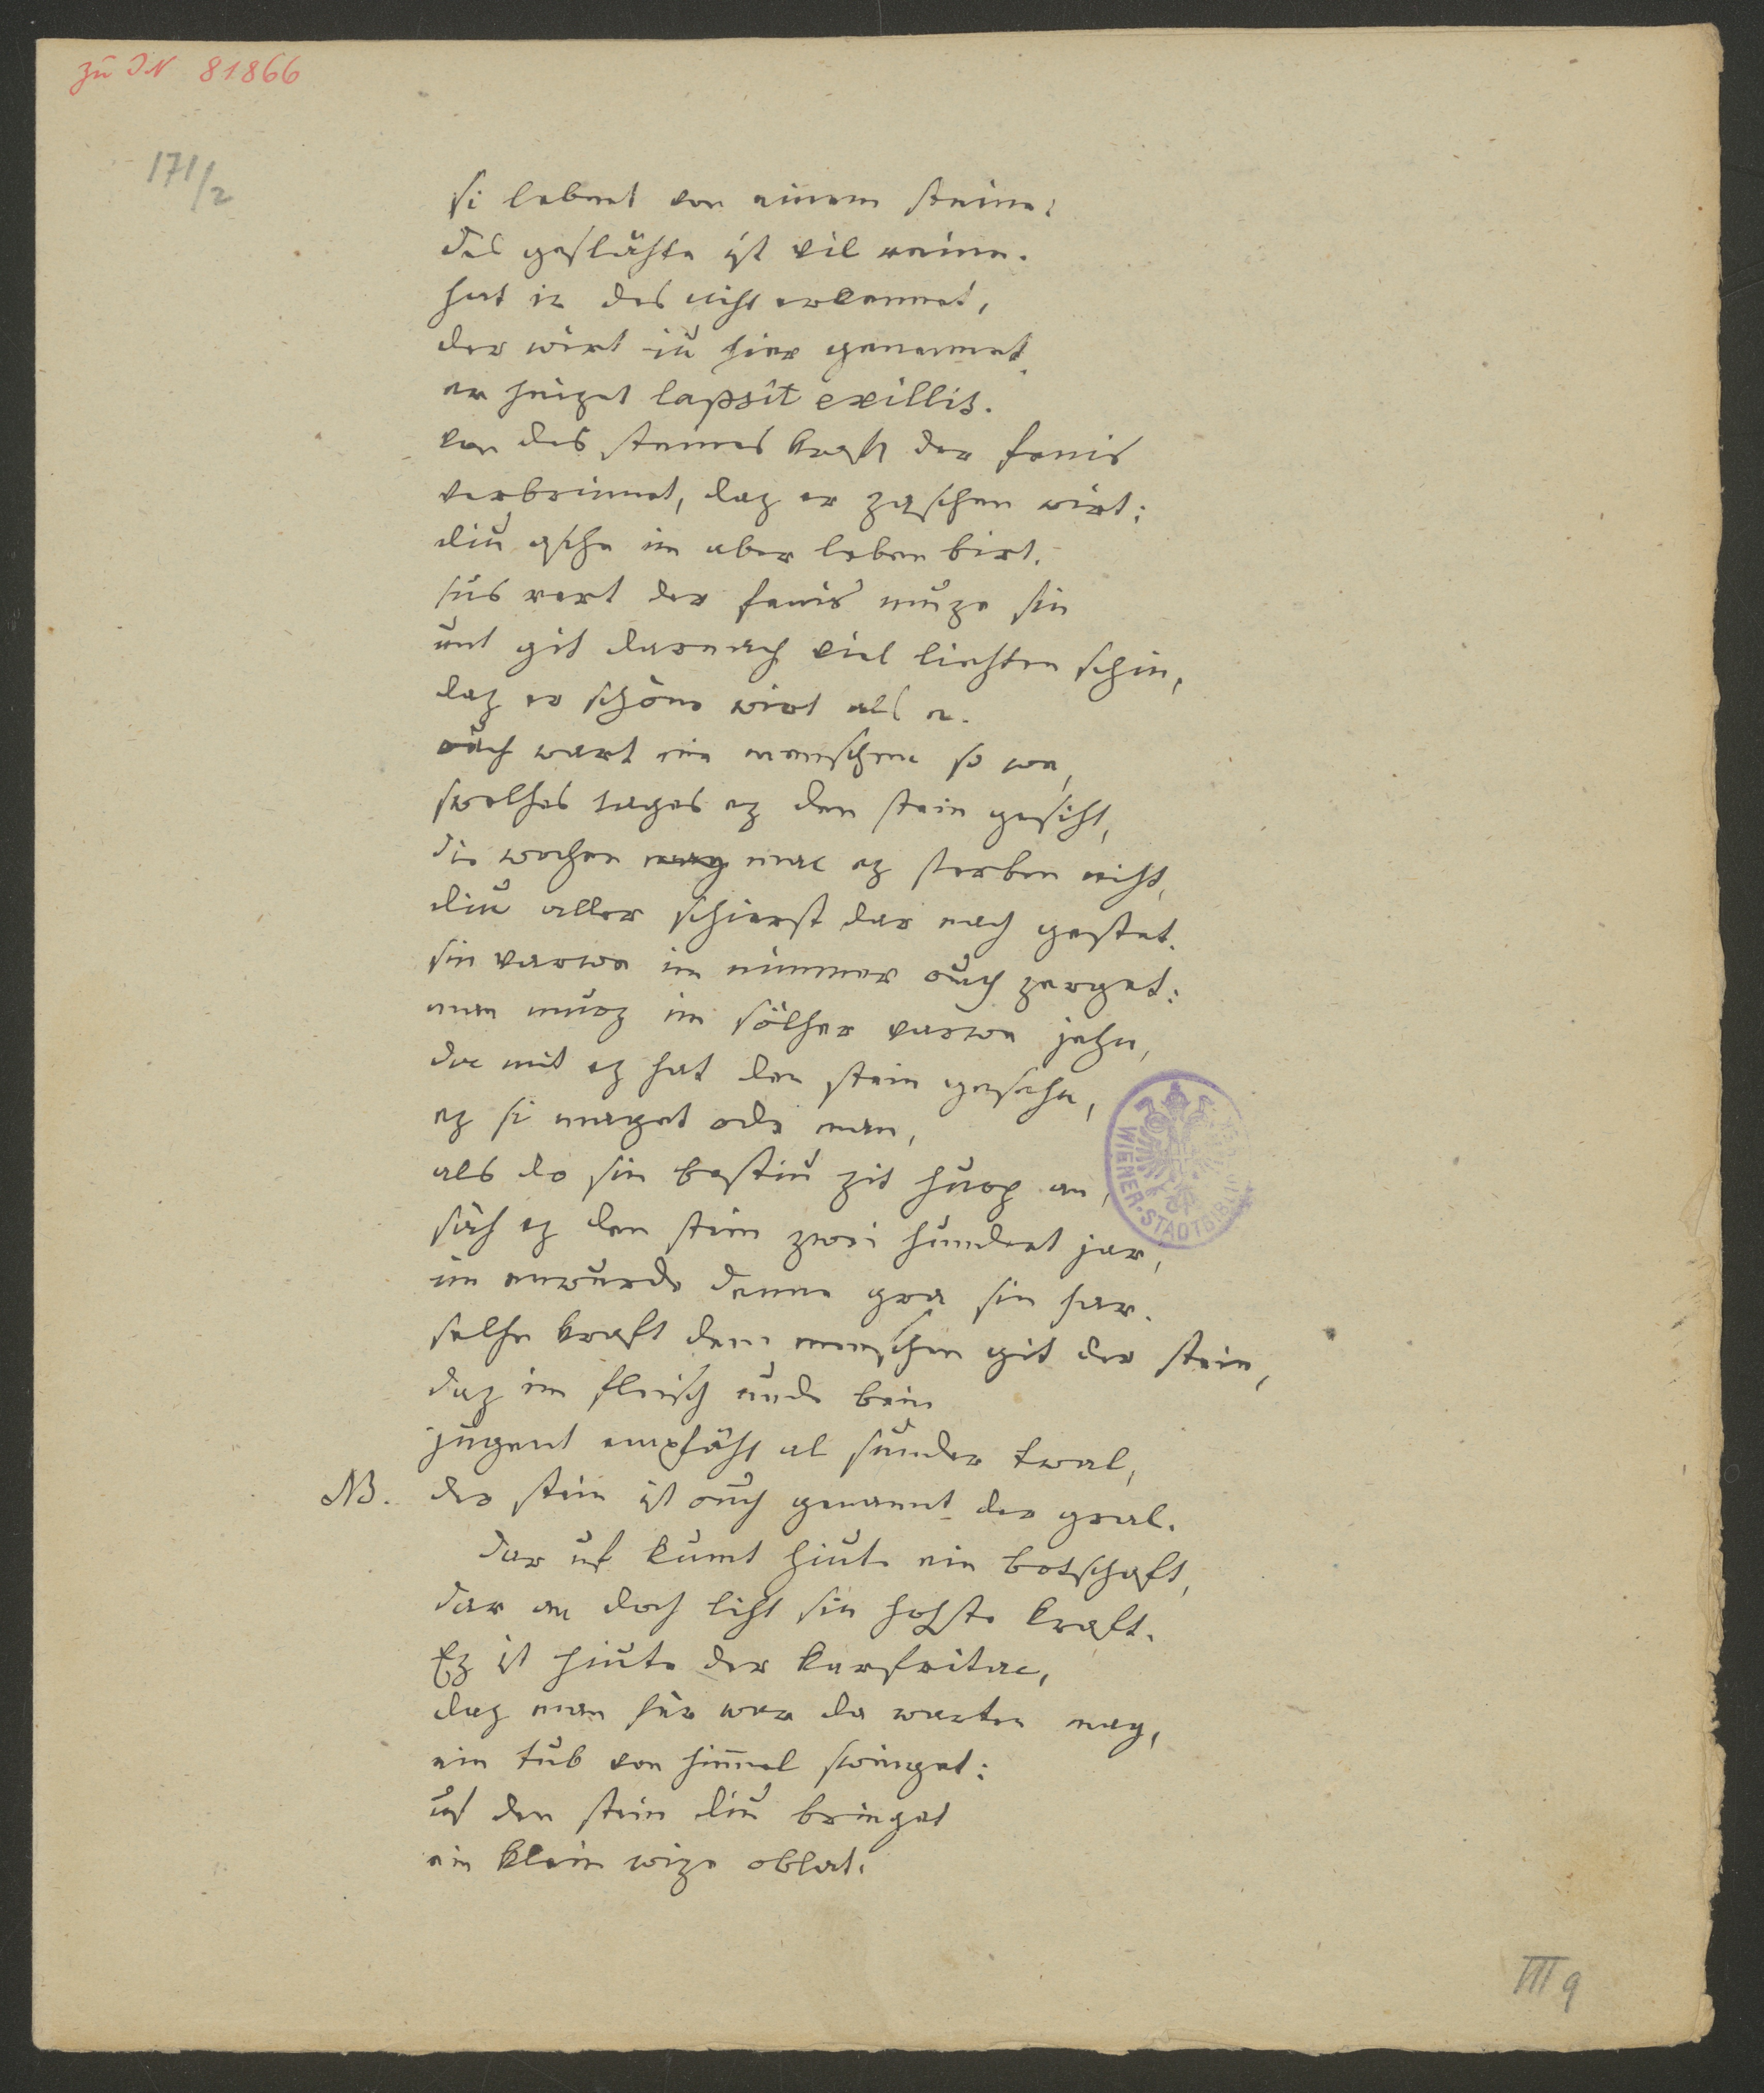 zu IN 81866
171/2
si lebent von einem steine:
des geslähte ist vil reine.
hat ir des niht erkennet,
der wirt iu hier genennet.
er heizet lapsit exillis.
von des steines kraft der fenis
verbrinnet, daz er zaschen wirt:
diu asche im aber leben birt.
sus rert der fenis muze sin
unt git darnach viel liehten schin,
daz er schöne wirt als e.
ouch wart nie menschen so we,
swelhes tages ez den stein gesiht,
die wochen mac ez sterben niht,
diu aller schierst dar nach gestet.
sin varwe im nimmer ouch zerget:
man muoz im sölher varwe jehn,
da mit ez hat den stein gesehn,
ez si maget ode man,
als do sin bestiu zit huop an,
säh ez den stein zwei hundert jar,
im enwurde denne gra sin har.
selhe kraft dem menschen git der stein,
daz im fleisch unde bein
jugent empfäht al sunder twal,
NB. der stein ist ouch genannt der gral.
dar uf kumt hiute ein botschaft,
dar an doch liht sin hohste kraft.
Ez ist hiute der karfritac,
daz man für war da warten mag,
ein tub von himmel swinget:
uf den stein diu bringet
ein klein wize oblat.
WIENER-STADTBIBL
III 9